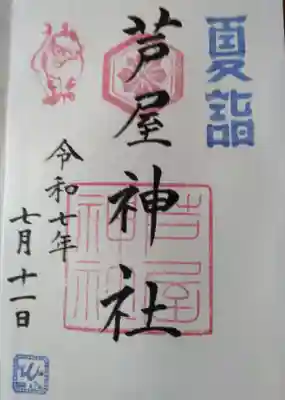 夏詣
芦屋神社
令和七年
七月十一日
芦屋
神社